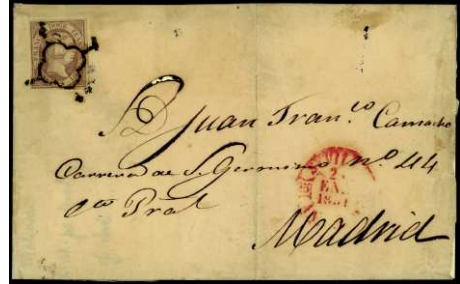 D Juan Fran.co Camacho
Carrera de S. Geronimo nº 44
cto Pral
Madrid
2
EN.
1851